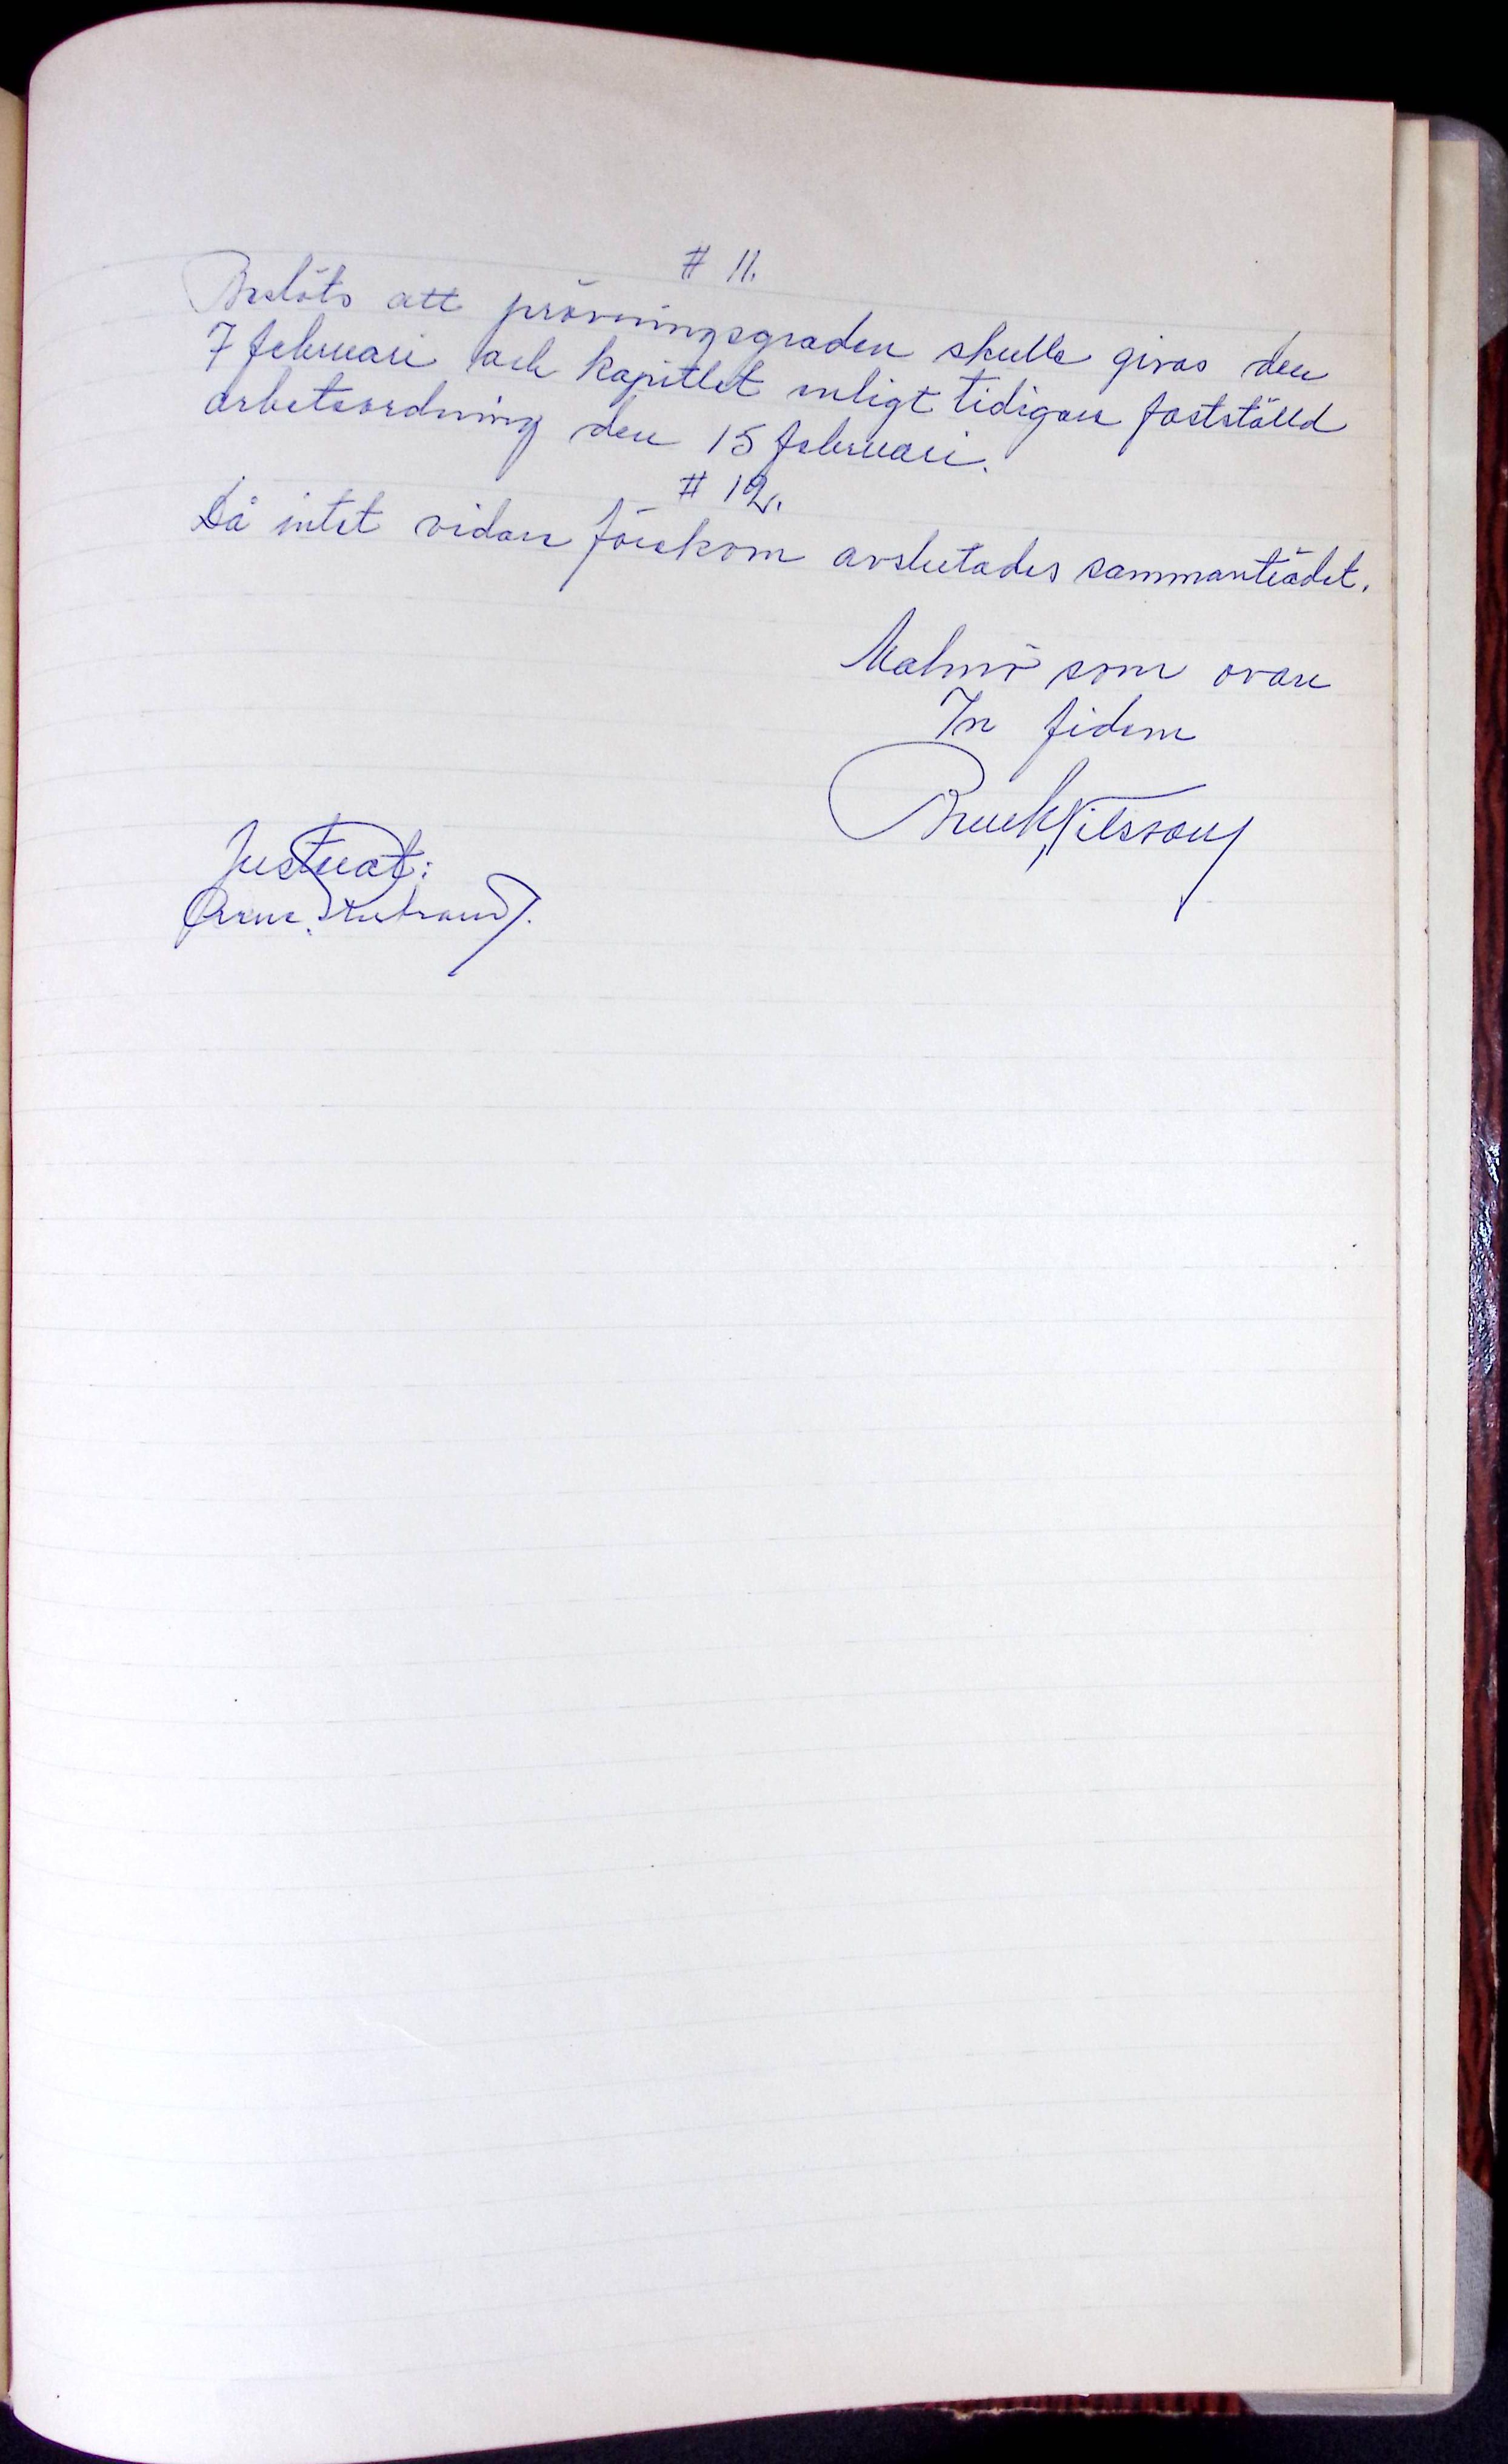 # 11.
Beslöts att prövningsgraden skulle givas den
7 februari och kapitlet enligt tidigare fastställd
arbetsordning den 15 februari.
# 12.
Då intet vidare förekom avslutades sammanträdet.
Malmö som ovan
In fidem
Nilsson
Justerat:
Arne